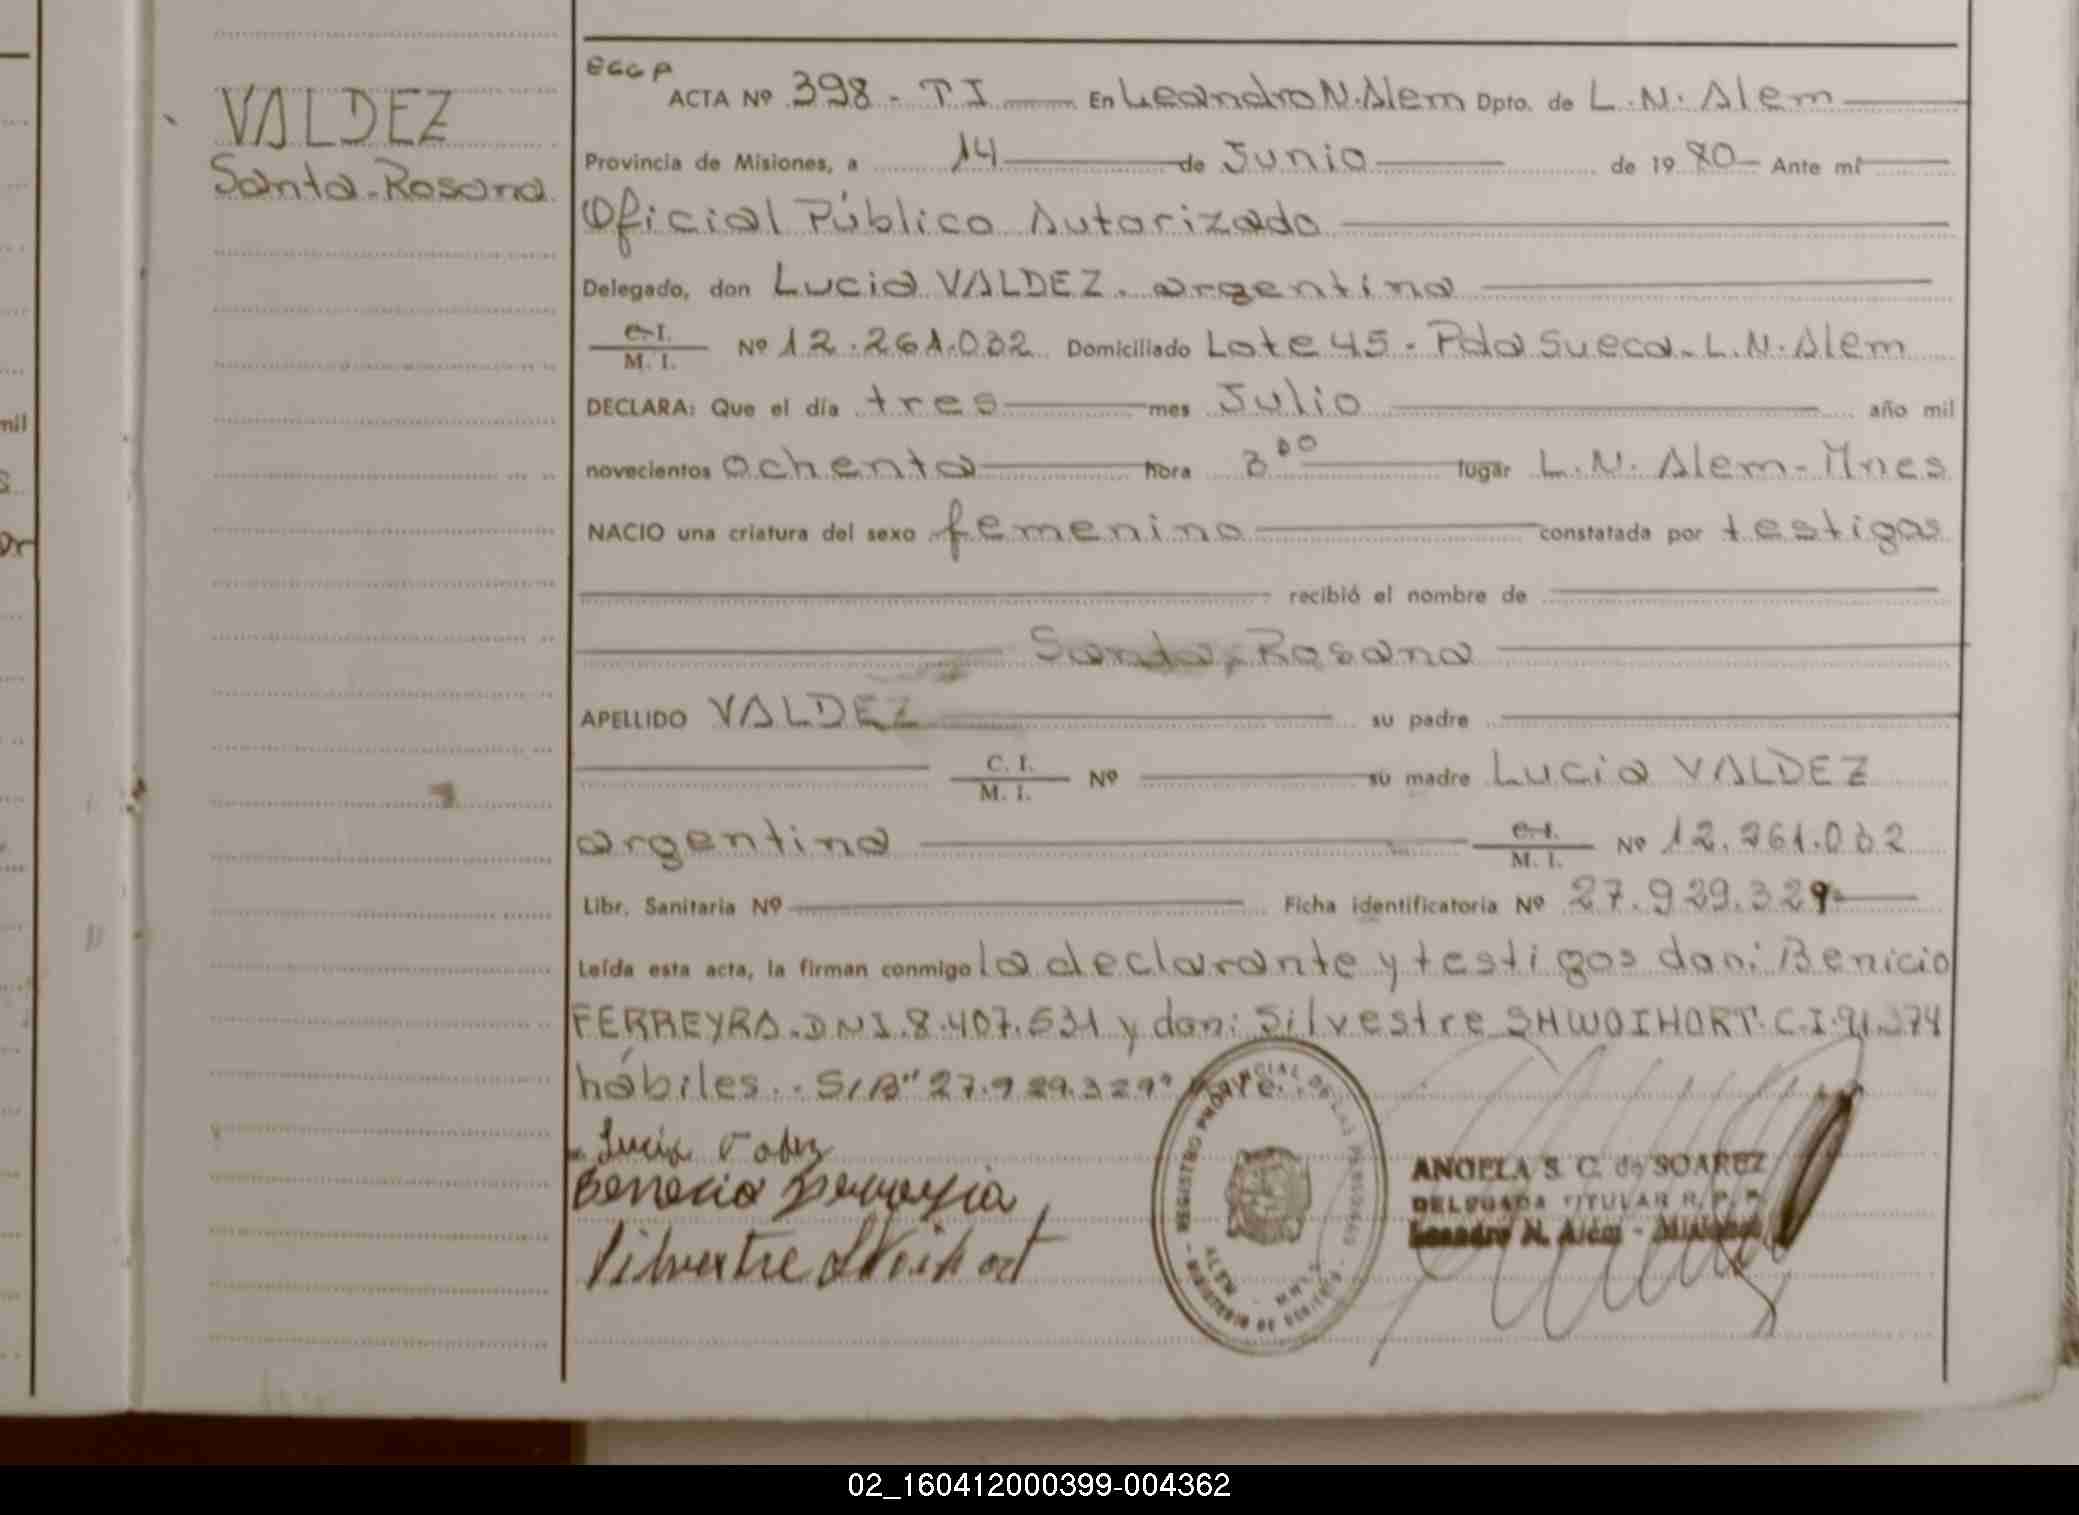 VALDEZ
Santa-Rosana
ACTA Nº 398 - T I En Leandro N. Alem Dpto. de L. N. Alem
Provincia de Misiones, a 14 de Junio de 19 80 Ante mí
Oficial Público Autorizado
Delegado, don Lucia VALDEZ. argentina
C.I.
M. I. Nº 12.261.032 Domiciliado Lote 45 - Pda Sueca. L. N. Alem
DECLARA: Que el día tres mes Julio año mil
novecientos ochenta hora 3 lugar L. N. Alem - Mnes
NACIO una criatura del sexo femenino constatada por testigos
recibió el nombre de
Santa, Rosana
APELLIDO VALDEZ su padre
C. I.
M. I. Nº su madre Lucia VALDEZ
argentina C.I.
M. I. Nº 12.261.032
Libr. Sanitaria Nº Ficha identificatoria Nº 27.929.329
Leída esta acta, la firman conmigo la declarante y testigos don: Benicio
FERREYRA. DNI. 8.407.531 y don: Silvestre SHWOIHORT. C.I. 91.374
hábiles.. S/B" 27.929.329" Vale.
Lucia Valdez
Silvestre
REGISTRO PROVINCIAL DE LAS PERSONAS
ALEM - MNES
MINISTERIO DE GOBIERNO
ANGELA S. C. de SOAREZ
DELEGADA TITULAR R. P. P.
Leandro N. Alem - Misiones
mil
02_160412000399-004362